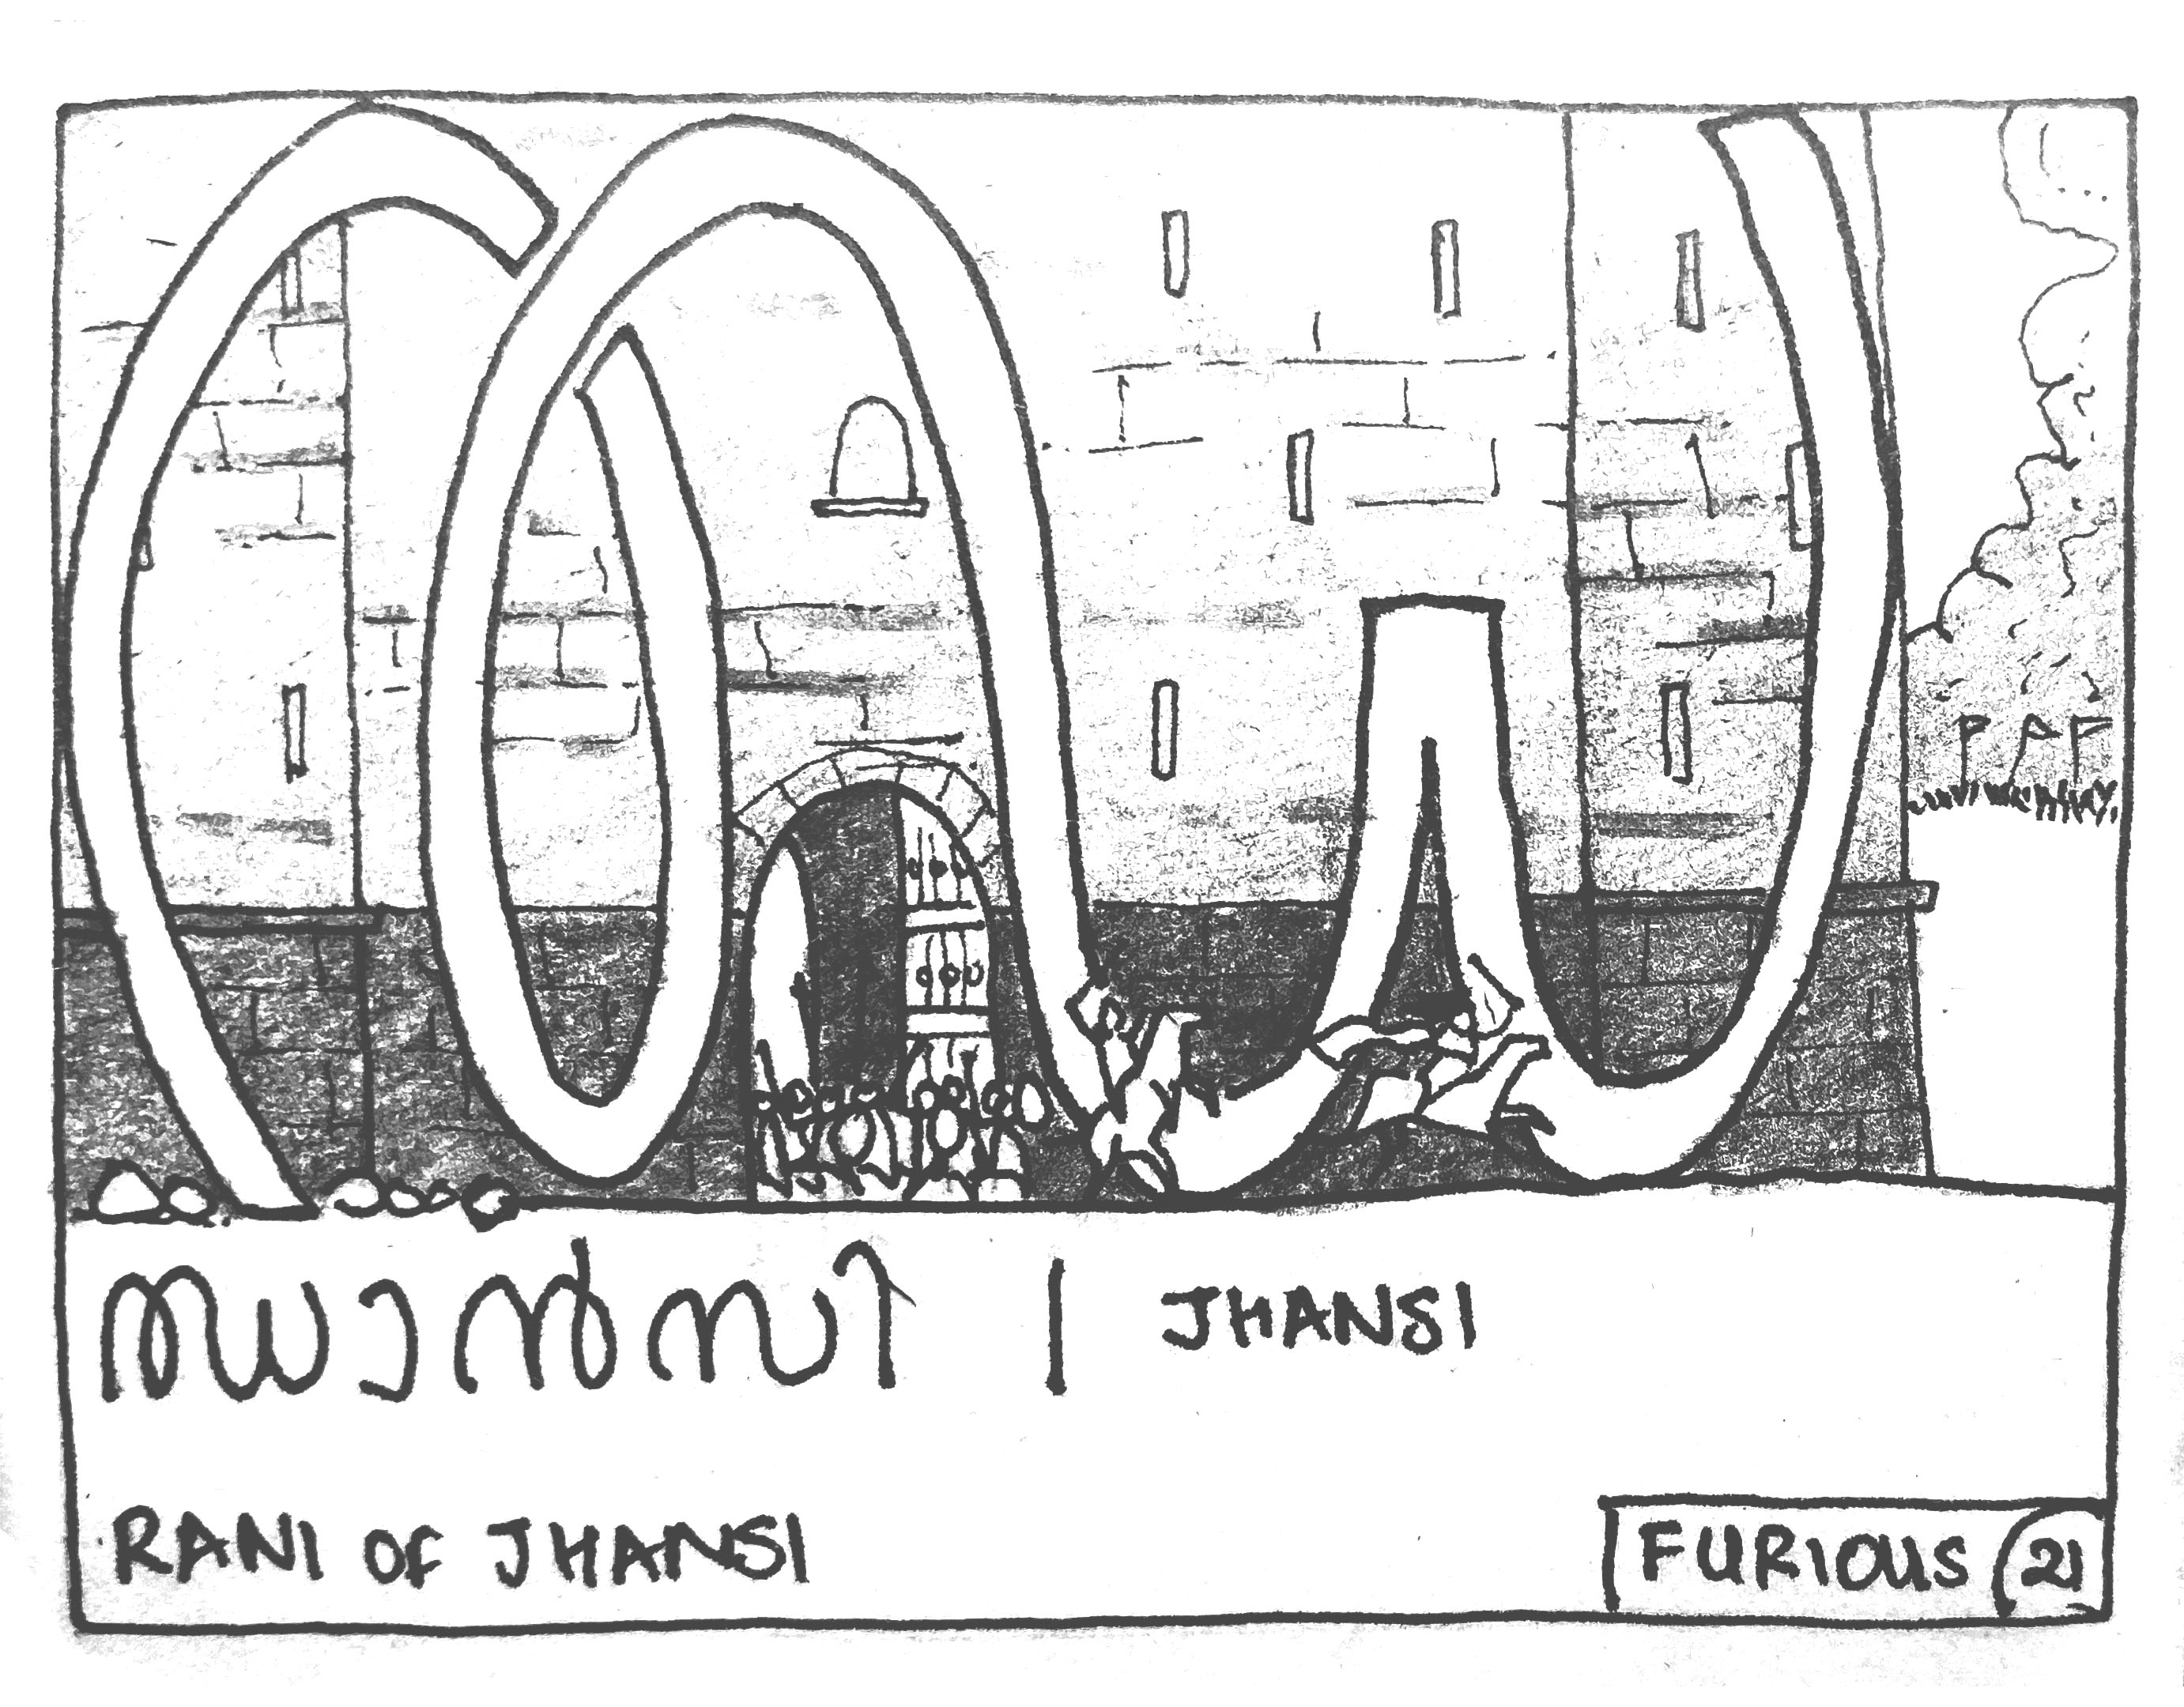 ഝ
ഝാൻസി | JHANSI
RANI OF JHANSI
FURIOUS 21